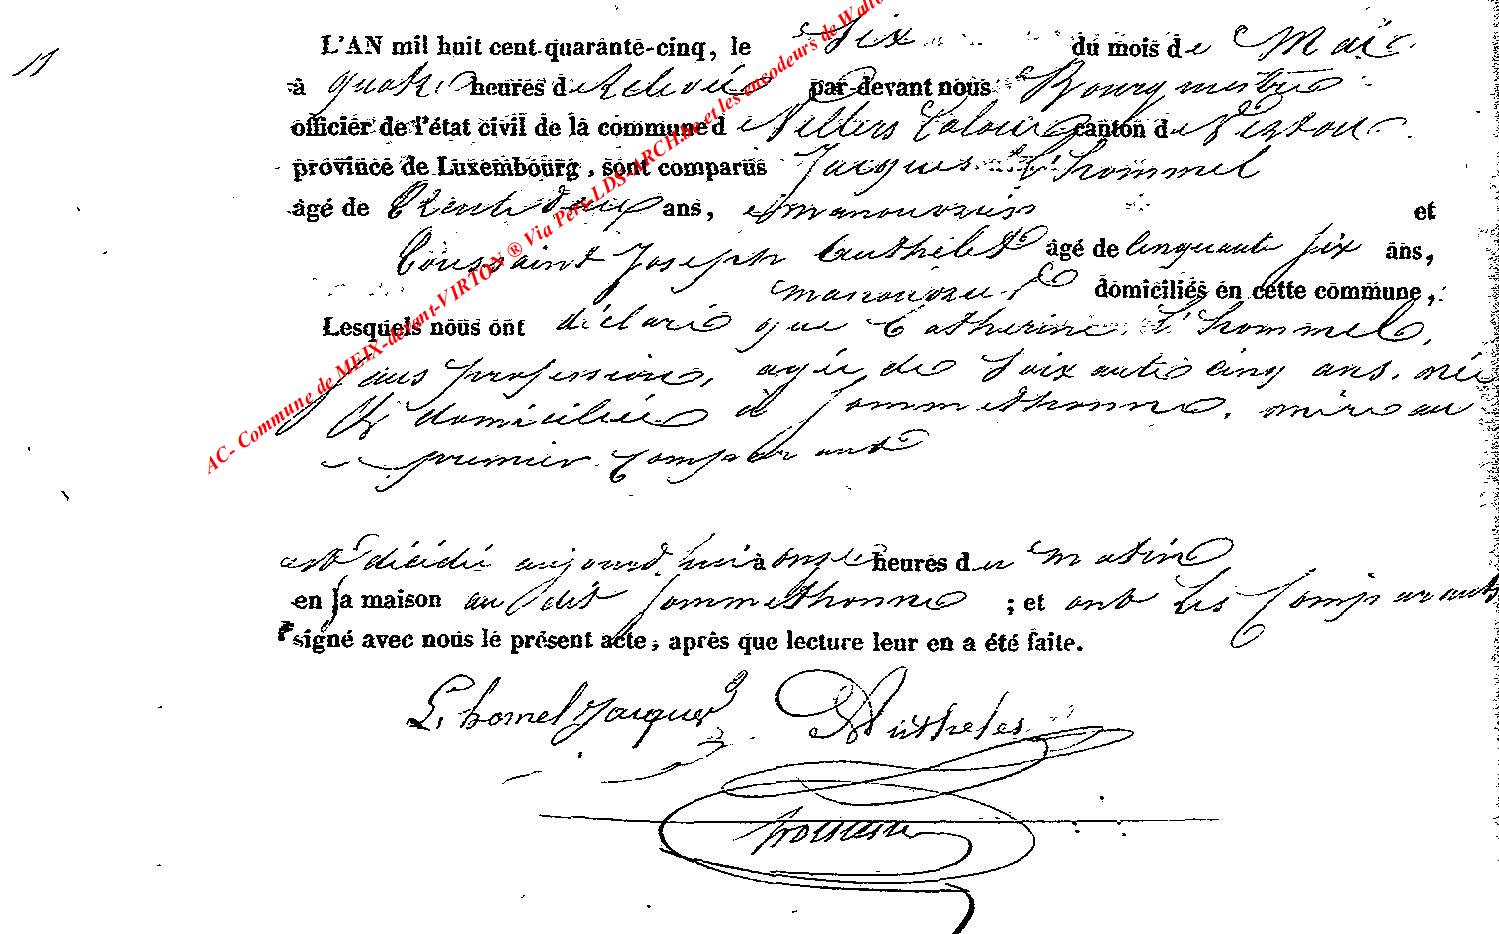 11
L'AN mil huit cent quarante-cinq, le Six du mois de Mai
à quatre heures de Relevée par-devant nous Bourgmestre
officier de l'état civil de la commune de Villers Laloue canton de Virton
province de Luxembourg, sont comparus Jacques L'hommel
âgé de Trente deux ans, manouvrier et
Toussaint Joseph Authelet âgé de Cinquante six ans,
manouvrier domiciliés en cette commune,
Lesquels nous ont déclaré que Catherine L'hommel,
sans profession, agée de Soixante cinq ans, née
& domiciliée à Sommethonne, mère au
premier Comparant
est décédé aujourd'hui à onze heures du matin
en sa maison au dit Sommethonne ; et ont les Comparants
signé avec nous le présent acte, après que lecture leur en a été faite.
L. homel Jacques Authelet
AC- Commune de MEIX-devant-VIRTON ® Via Pers-LDS-ARCH.be et les encodeurs de